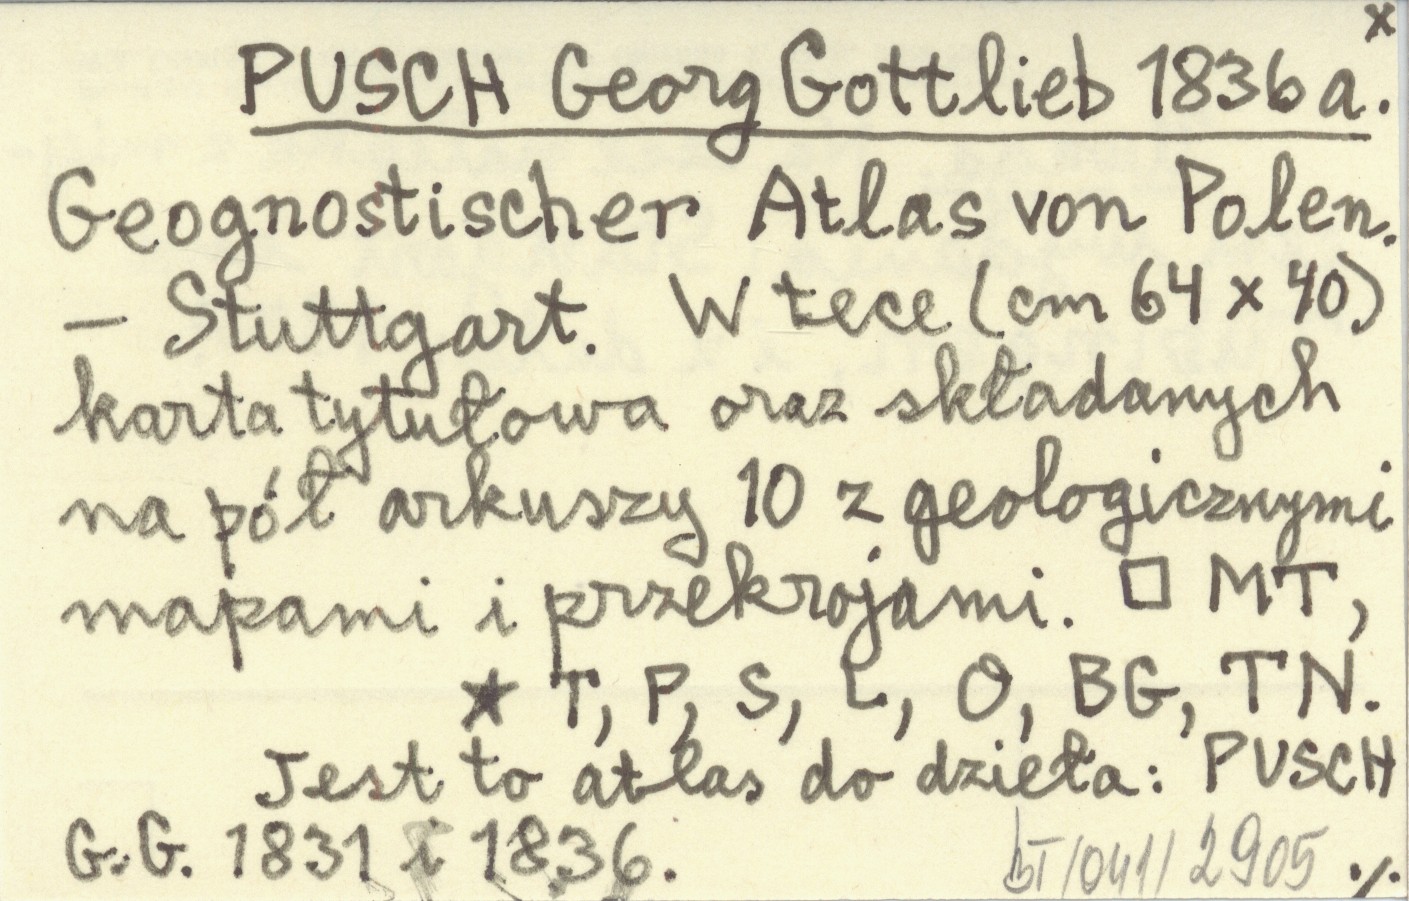 x
PUSCH Georg Gottlieb 1836a.
Geognostischer Atlas von Polen.
– Stuttgart. W tece (cm 64 x 40)
karta tytułowa oraz składanych
na pół arkuszy 10 z geologicznymi
mapami i przekrojami. □ MT,
★ T, P, S, L, O, BG, TN.
Jest to atlas do dzieła: PUSCH
G.G. 1831 i 1836.
BT/041/2905 ./.